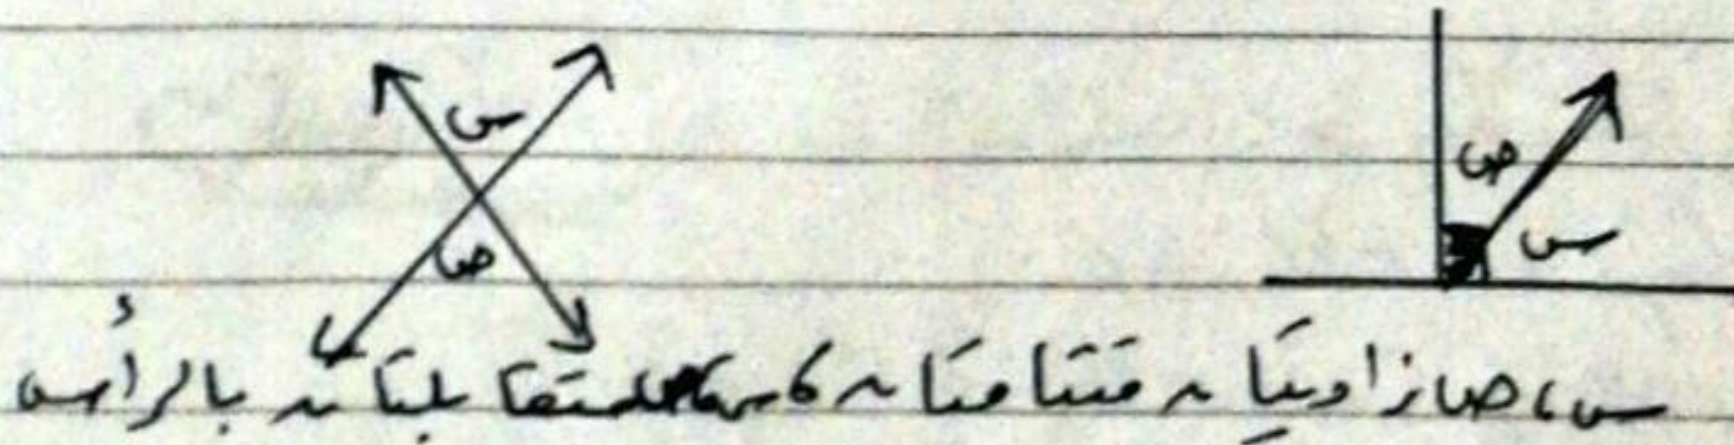 س
ص
ص
س
س، ص زاويتان متتامتان، س، ص متقابلتان بالرأس